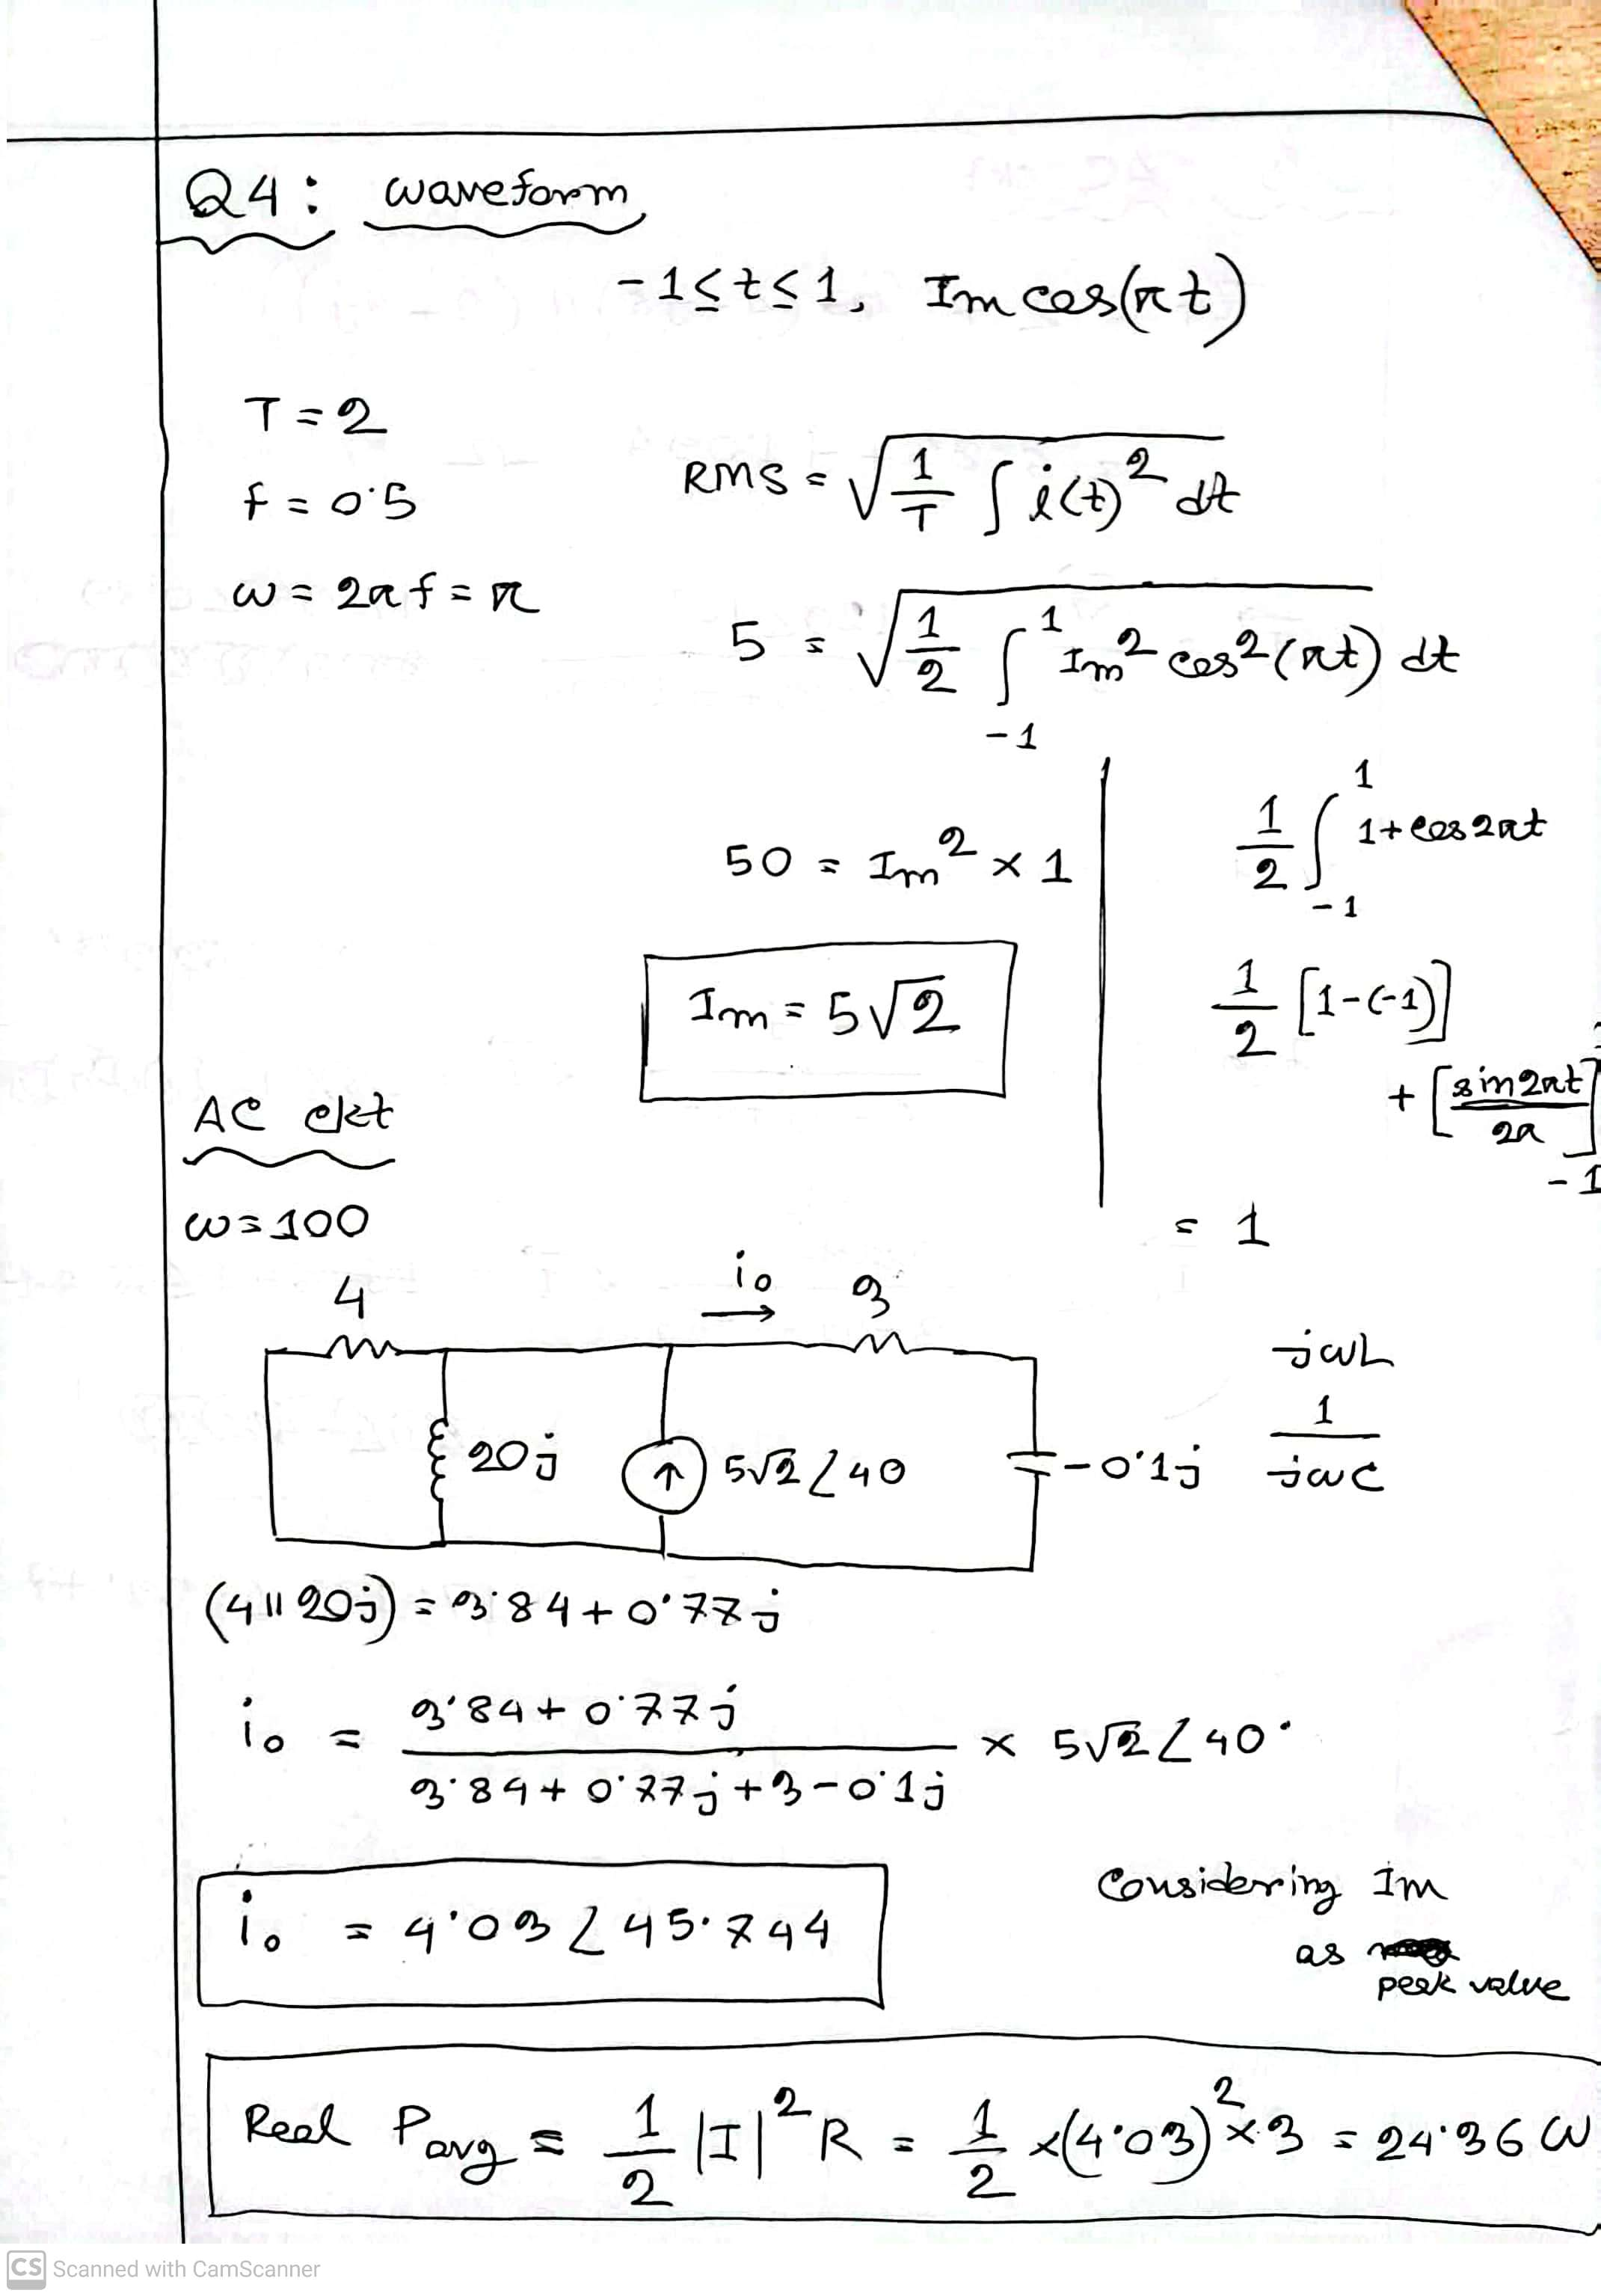 Q4: waveform
-1≤t≤1, Im cos(πt)
T = 2
f = 0.5
ω = 2πf = π
RMS = √(1/T ∫ i(t)² dt)
5 = √(1/2 ∫₋₁¹ Im² cos²(πt) dt)
50 = Im² × 1
Im = 5√2
1/2 ∫₋₁¹ 1+cos2πt
1/2 [1-(-1)]
+ [sin2πt/2π]₋₁
= 1
AC ckt
ω = 100
4
i₀
3
20j
5√2 ∠40
-0.1j
jωL
1/jωC
(4 || 20j) = 3.84 + 0.77j
i₀ = (3.84 + 0.77j)/(3.84 + 0.77j + 3 - 0.1j) × 5√2 ∠40°
i₀ = 4.03 ∠45.744
Considering Im
as
peak value
Real Pavg = 1/2 |I|² R = 1/2 ×(4.03)² × 3 = 24.36 W
CS Scanned with CamScanner